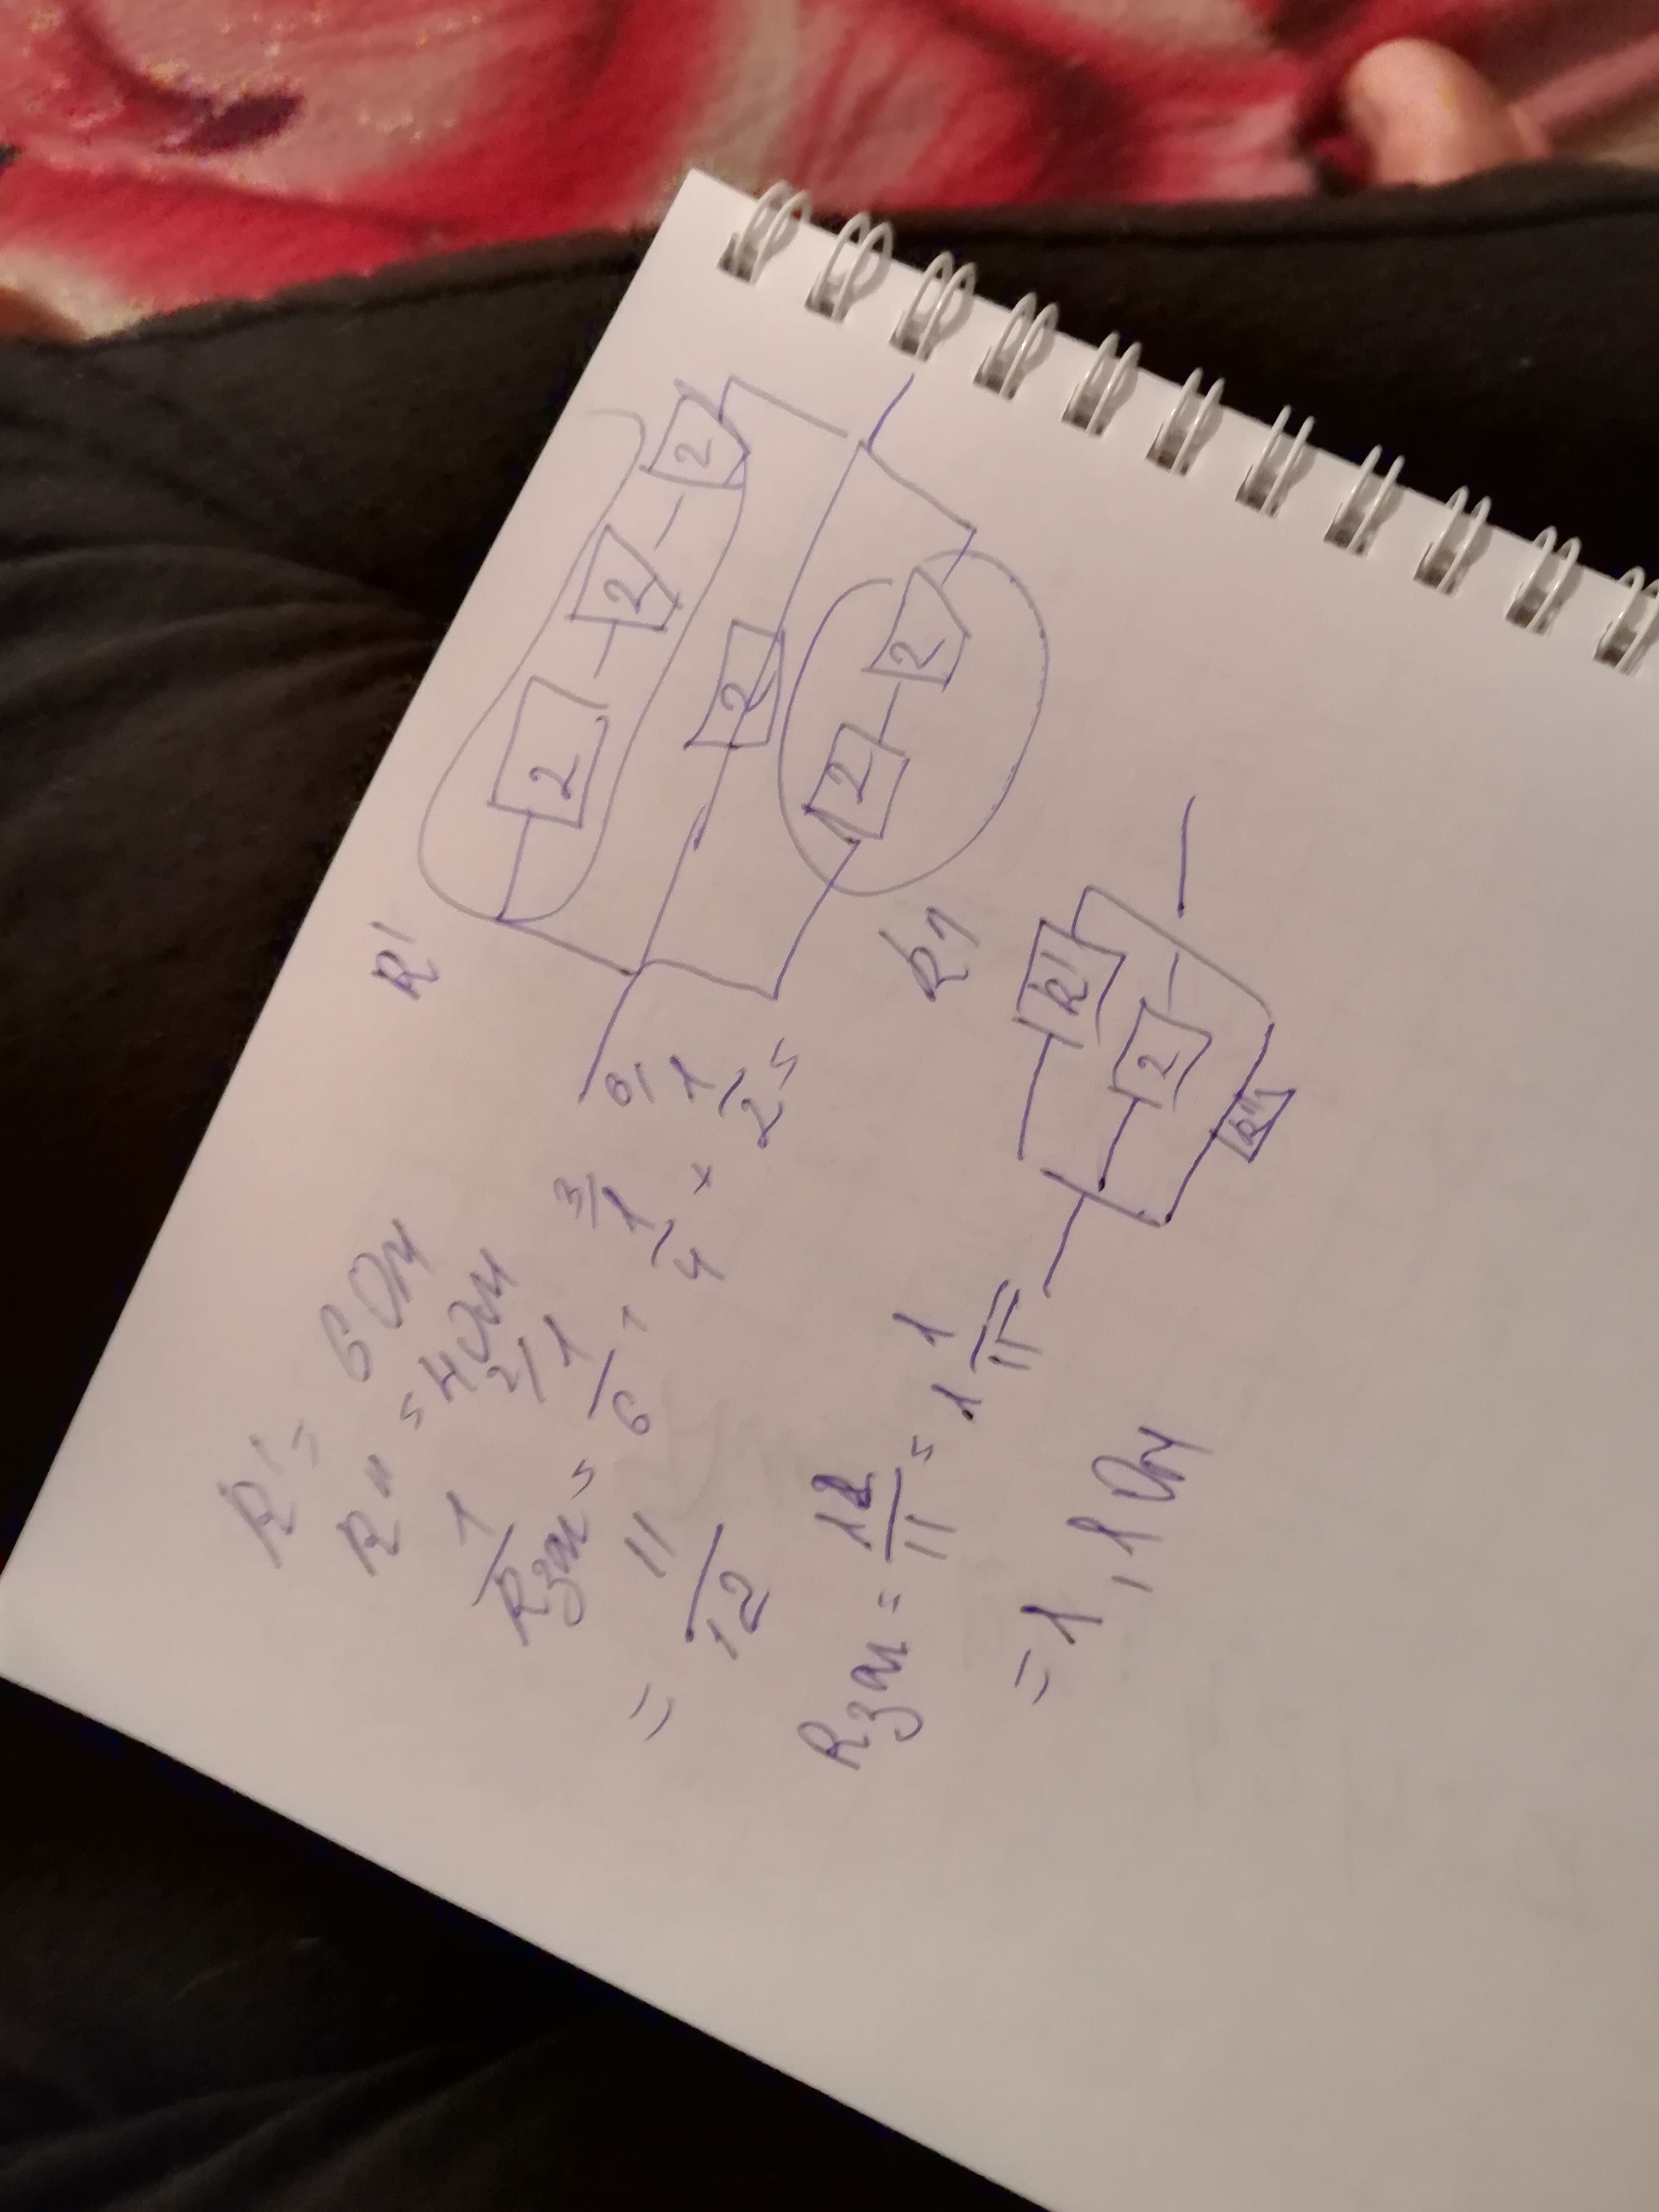 2 2 2
2
2 2
R'
R"
R' 2 R"
R' = 6 Ом
R" = 4 Ом
1/Rзаг = 2/ 1/6 + 3/ 1/4 + 6/ 1/2 =
= 11/12
Rзаг = 12/11 = 1 1/11
= 1,1 Ом